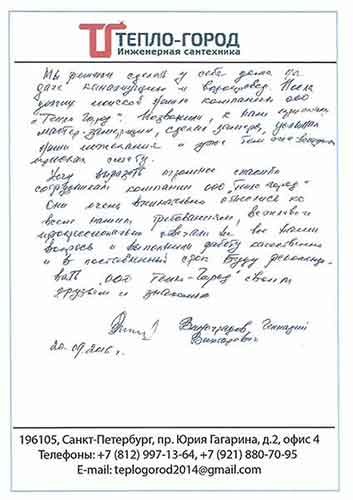 ТЕПЛО-ГОРОД
Инженерная сантехника
Мы решили сделать у себя дома на
даче канализацию и водопровод. После
долгих поисков нашли компанию ООО
"Тепло Город". Позвонили, к нам приехал
мастер-замерщик, сделал замеры, услышал
наши пожелания и уже
прислал смету.
Хочу выразить огромное спасибо
сотрудникам компании ООО "Тепло-Город"
Они очень внимательно отнеслись ко
всем нашим требованиям, вежливо и
профессионально ответили на все наши
вопросы и выполнили работу качественно
и в поставленный срок. Буду рекомендо-
вать "ООО Тепло-Город" своим
друзьям и знакомым
Виноградов, Геннадий
Викторович
20.09.2016 г.
196105, Санкт-Петербург, пр. Юрия Гагарина, д.2, офис 4
Телефоны: +7 (812) 997-13-64, +7 (921) 880-70-95
E-mail: teplogorod2014@gmail.com